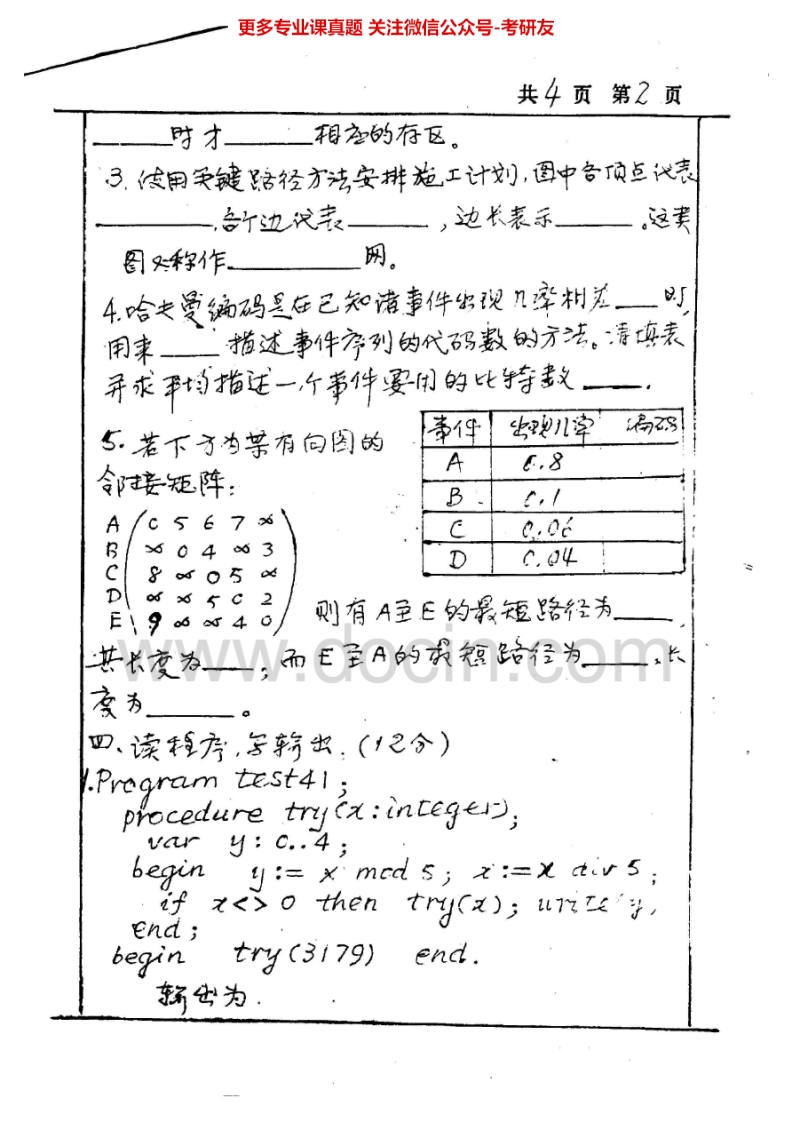 更多专业课真题 关注微信公众号-考研友
共4页 第2页
______时才______相应的存区。
3.使用关键路径方法安排施工计划,图中各顶点代表
______,各个边代表______,边长表示______。这类
图又称作______网。
4.哈夫曼编码是在已知诸事件出现几率相差___时,
用来____描述事件序列的代码数的方法。请填表
并求平均描述一个事件要用的比特数____.
事件 出现几率 编码
A 0.8
B 0.1
C 0.06
D 0.04
5.若下方为某有向图的
邻接矩阵:
A 0 5 6 7 ∞
B ∞ 0 4 ∞ 3
C 8 ∞ 0 5 ∞
D ∞ ∞ 5 0 2
E 9 ∞ ∞ 4 0
则有A至E的最短路径为____,
www.docin.com
其长度为___;而E至A的最短路径为____,长
度为_____。
四、读程序,写输出.(12分)
1.Program test41;
procedure try(x:integer);
var y: 0..4;
begin y:= x mod 5; x:=x div 5;
if x<>0 then try(x); write(y)
end;
begin try(3179) end.
输出为.